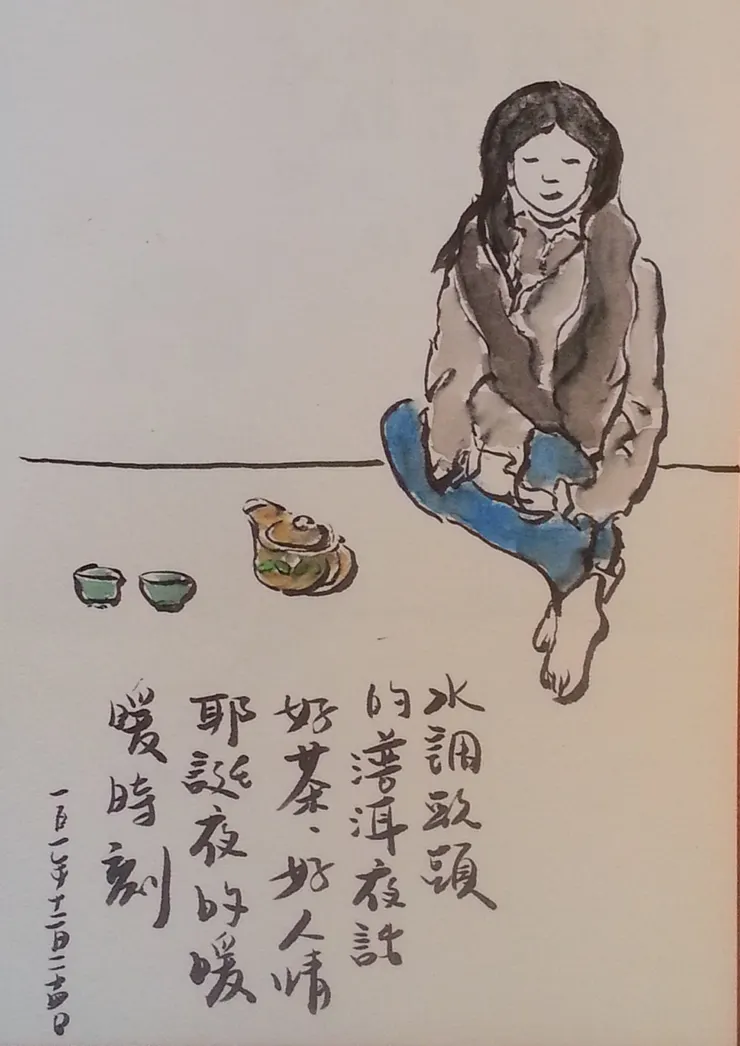 水調歌頭
的潽洱夜話
好茶、好人情
耶誕夜的暖
暖時刻
一百一年十二月二十四日